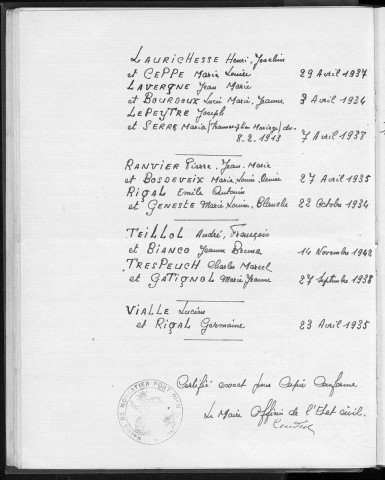 LAURICHESSE Henri, Joachim
et CEPPE Marie Louise 29 Avril 1937
LAVERGNE Jean Marie
et BOURDOUX Lucie Marie, Jeanne 3 Avril 1934
LEPEYTRE Joseph
et SERRE Maria (Transcription Mariage) du:
8.2.1913 7 Avril 1938
RANVIER Pierre, Jean-Marie
et BOSDEVEIX Marie, Louis, Denise 27 Avril 1935
RIGAL Emile Antonin
et GENESTE Marie Louise, Blanche 22 Octobre 1934
TEILLOL André, François
et BIANCO Jeanne 14 Novembre 1942
TRESPEUCH Charles Marcel
et GATIGNOL Marie Jeanne 27 Septembre 1938
VIALLE Lucien
et RIGAL Germaine 23 Avril 1935
Certifié exact pour Copie Conforme
Le Maire Officier de l'Etat civil.